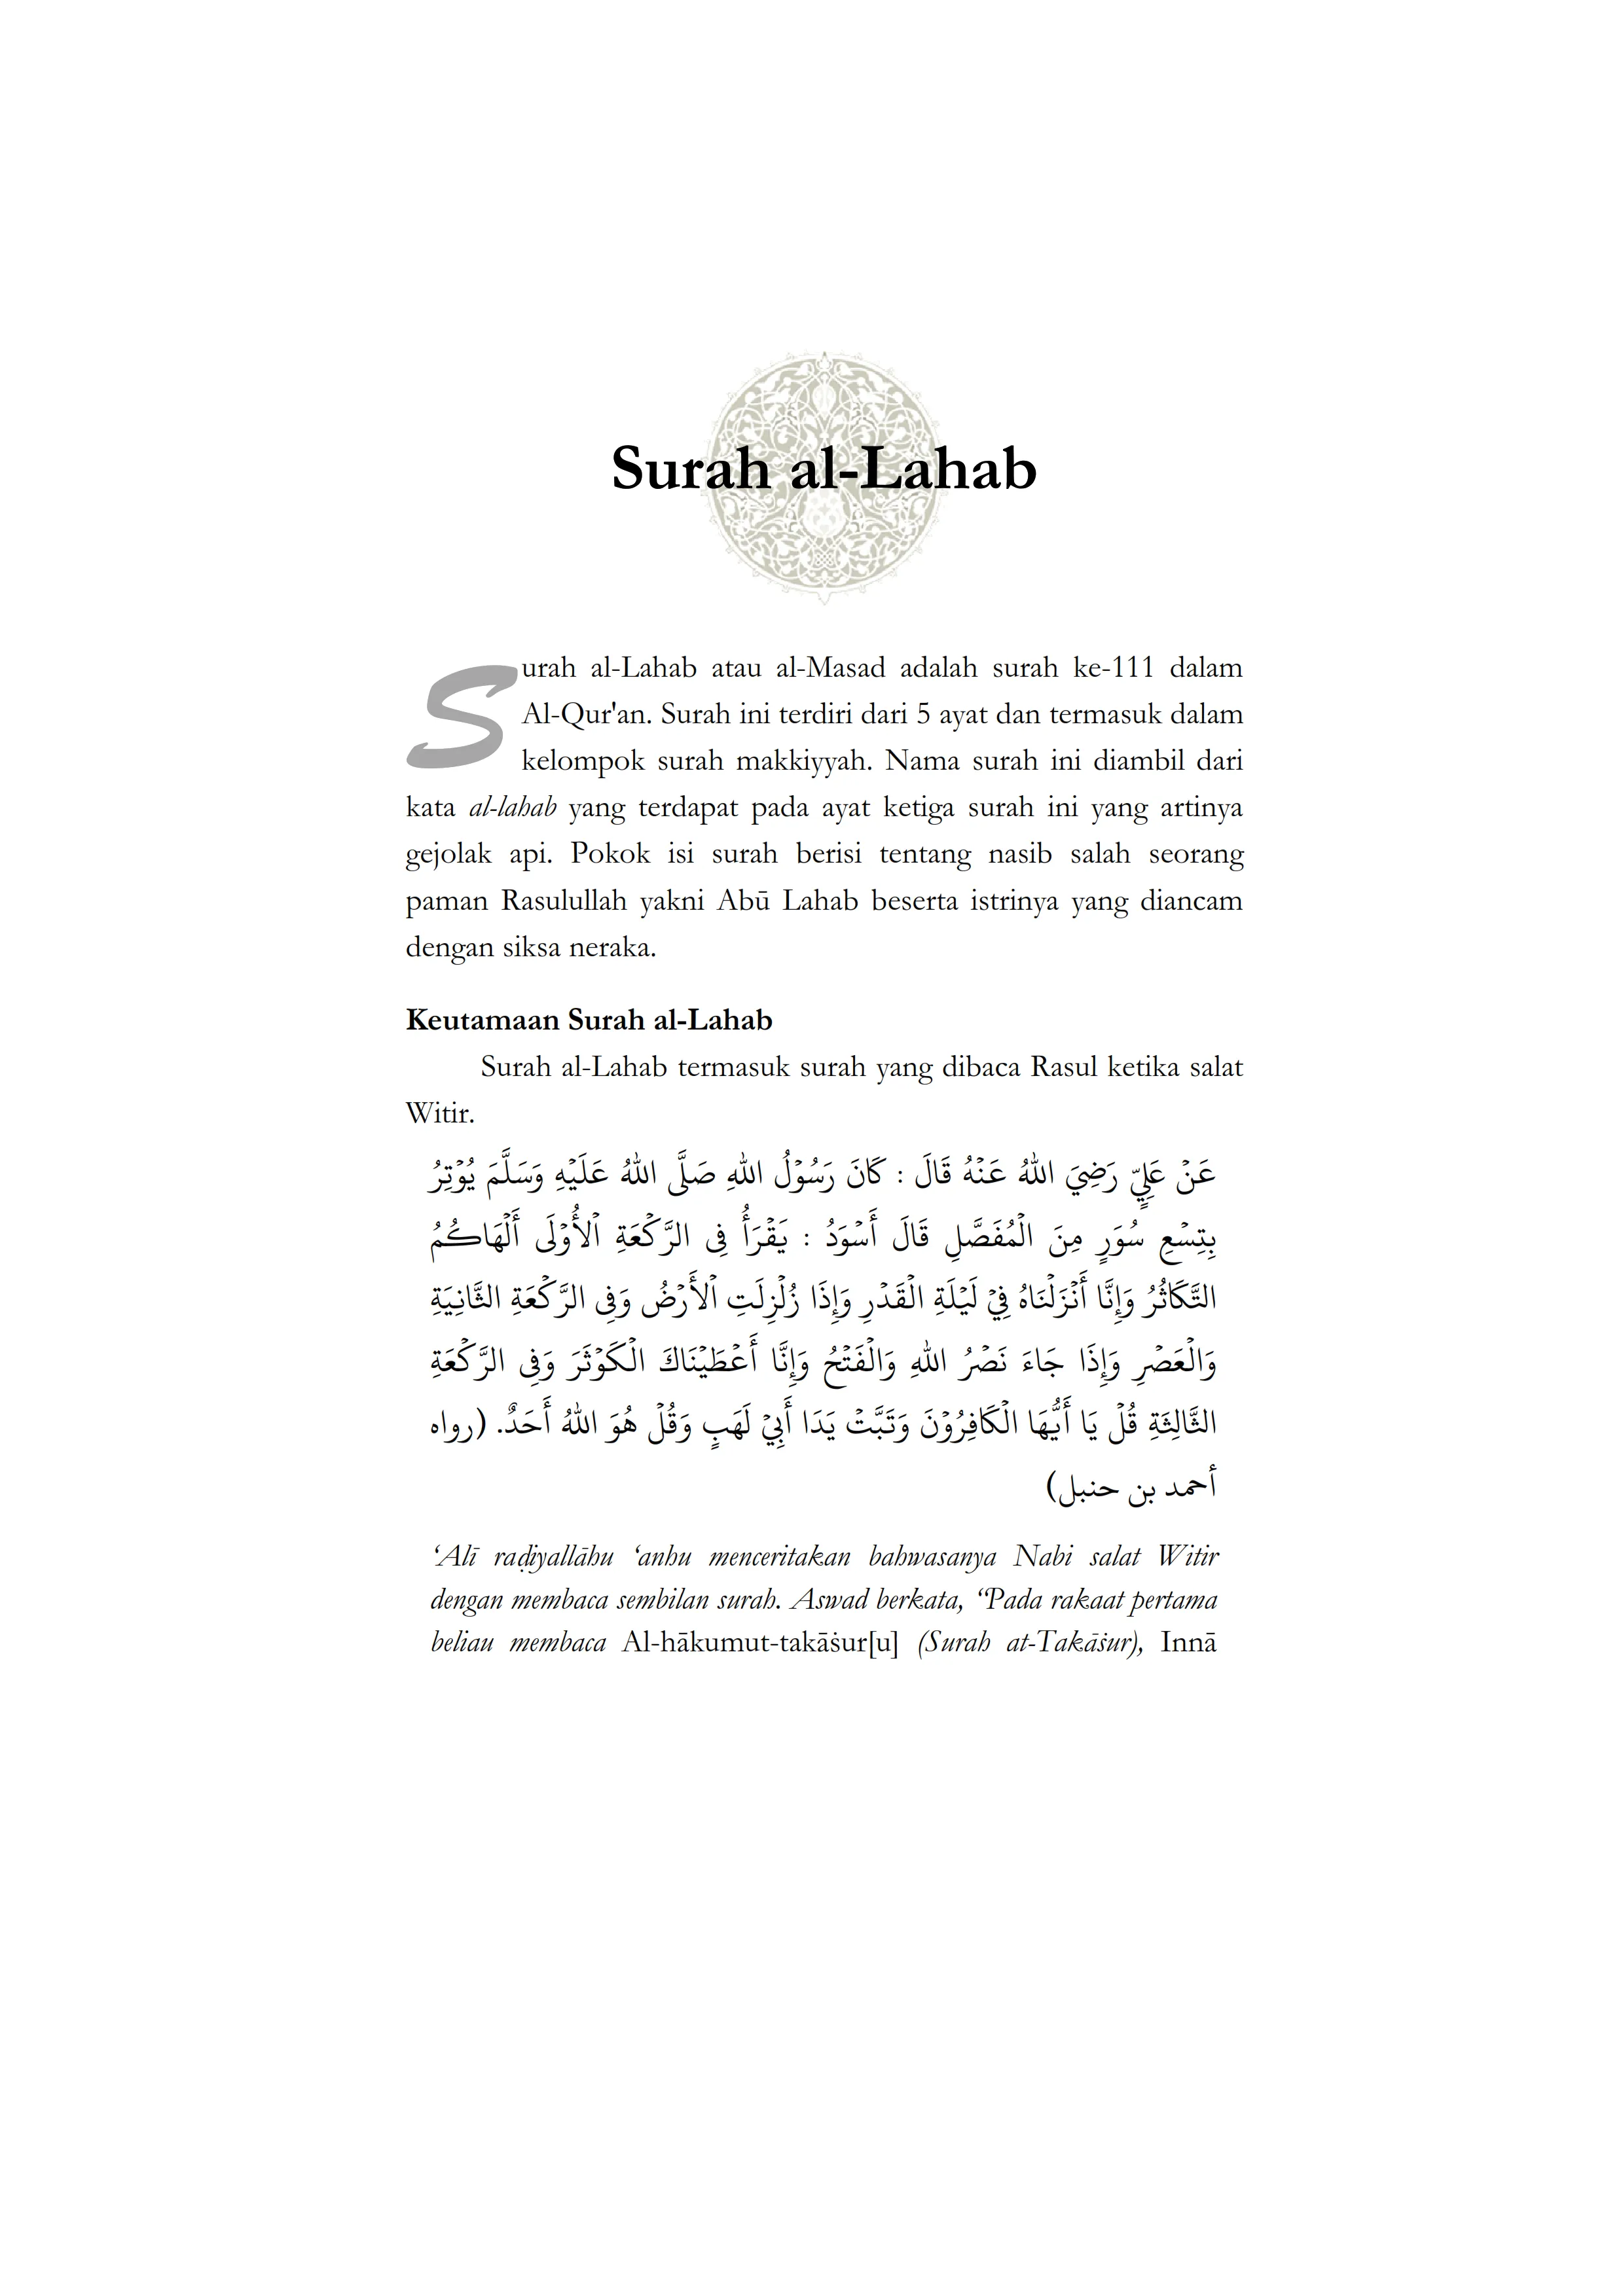 Surah al-Lahab
Surah al-Lahab atau al-Masad adalah surah ke-111 dalam
Al-Qur'an. Surah ini terdiri dari 5 ayat dan termasuk dalam
kelompok surah makkiyyah. Nama surah ini diambil dari
kata al-lahab yang terdapat pada ayat ketiga surah ini yang artinya
gejolak api. Pokok isi surah berisi tentang nasib salah seorang
paman Rasulullah yakni Abū Lahab beserta istrinya yang diancam
dengan siksa neraka.
Keutamaan Surah al-Lahab
Surah al-Lahab termasuk surah yang dibaca Rasul ketika salat
Witir.
عَنْ عَلِيٍّ رَضِيَ اللهُ عَنْهُ قَالَ : كَانَ رَسُوْلُ اللهِ صَلَّى اللهُ عَلَيْهِ وَسَلَّمَ يُوْتِرُ
بِتِسْعِ سُوَرٍ مِنَ الْمُفَصَّلِ قَالَ أَسْوَدُ : يَقْرَأُ فِى الرَّكْعَةِ الْأُوْلَى أَلْهَاكُمُ
التَّكَاثُرُ وَإِنَّا أَنْزَلْنَاهُ فِيْ لَيْلَةِ الْقَدْرِ وَإِذَا زُلْزِلَتِ الْأَرْضُ وَفِى الرَّكْعَةِ الثَّانِيَةِ
وَالْعَصْرِ وَإِذَا جَاءَ نَصْرُ اللهِ وَالْفَتْحُ وَإِنَّا أَعْطَيْنَاكَ الْكَوْثَرَ وَفِى الرَّكْعَةِ
الثَّالِثَةِ قُلْ يَا أَيُّهَا الْكَافِرُوْنَ وَتَبَّتْ يَدَا أَبِيْ لَهَبٍ وَقُلْ هُوَ اللهُ أَحَدٌ. (رواه
أحمد بن حنبل)
‘Alī raḍiyallāhu ‘anhu menceritakan bahwasanya Nabi salat Witir
dengan membaca sembilan surah. Aswad berkata, “Pada rakaat pertama
beliau membaca Al-hākumut-takāṡur[u] (Surah at-Takāṡur), Innā